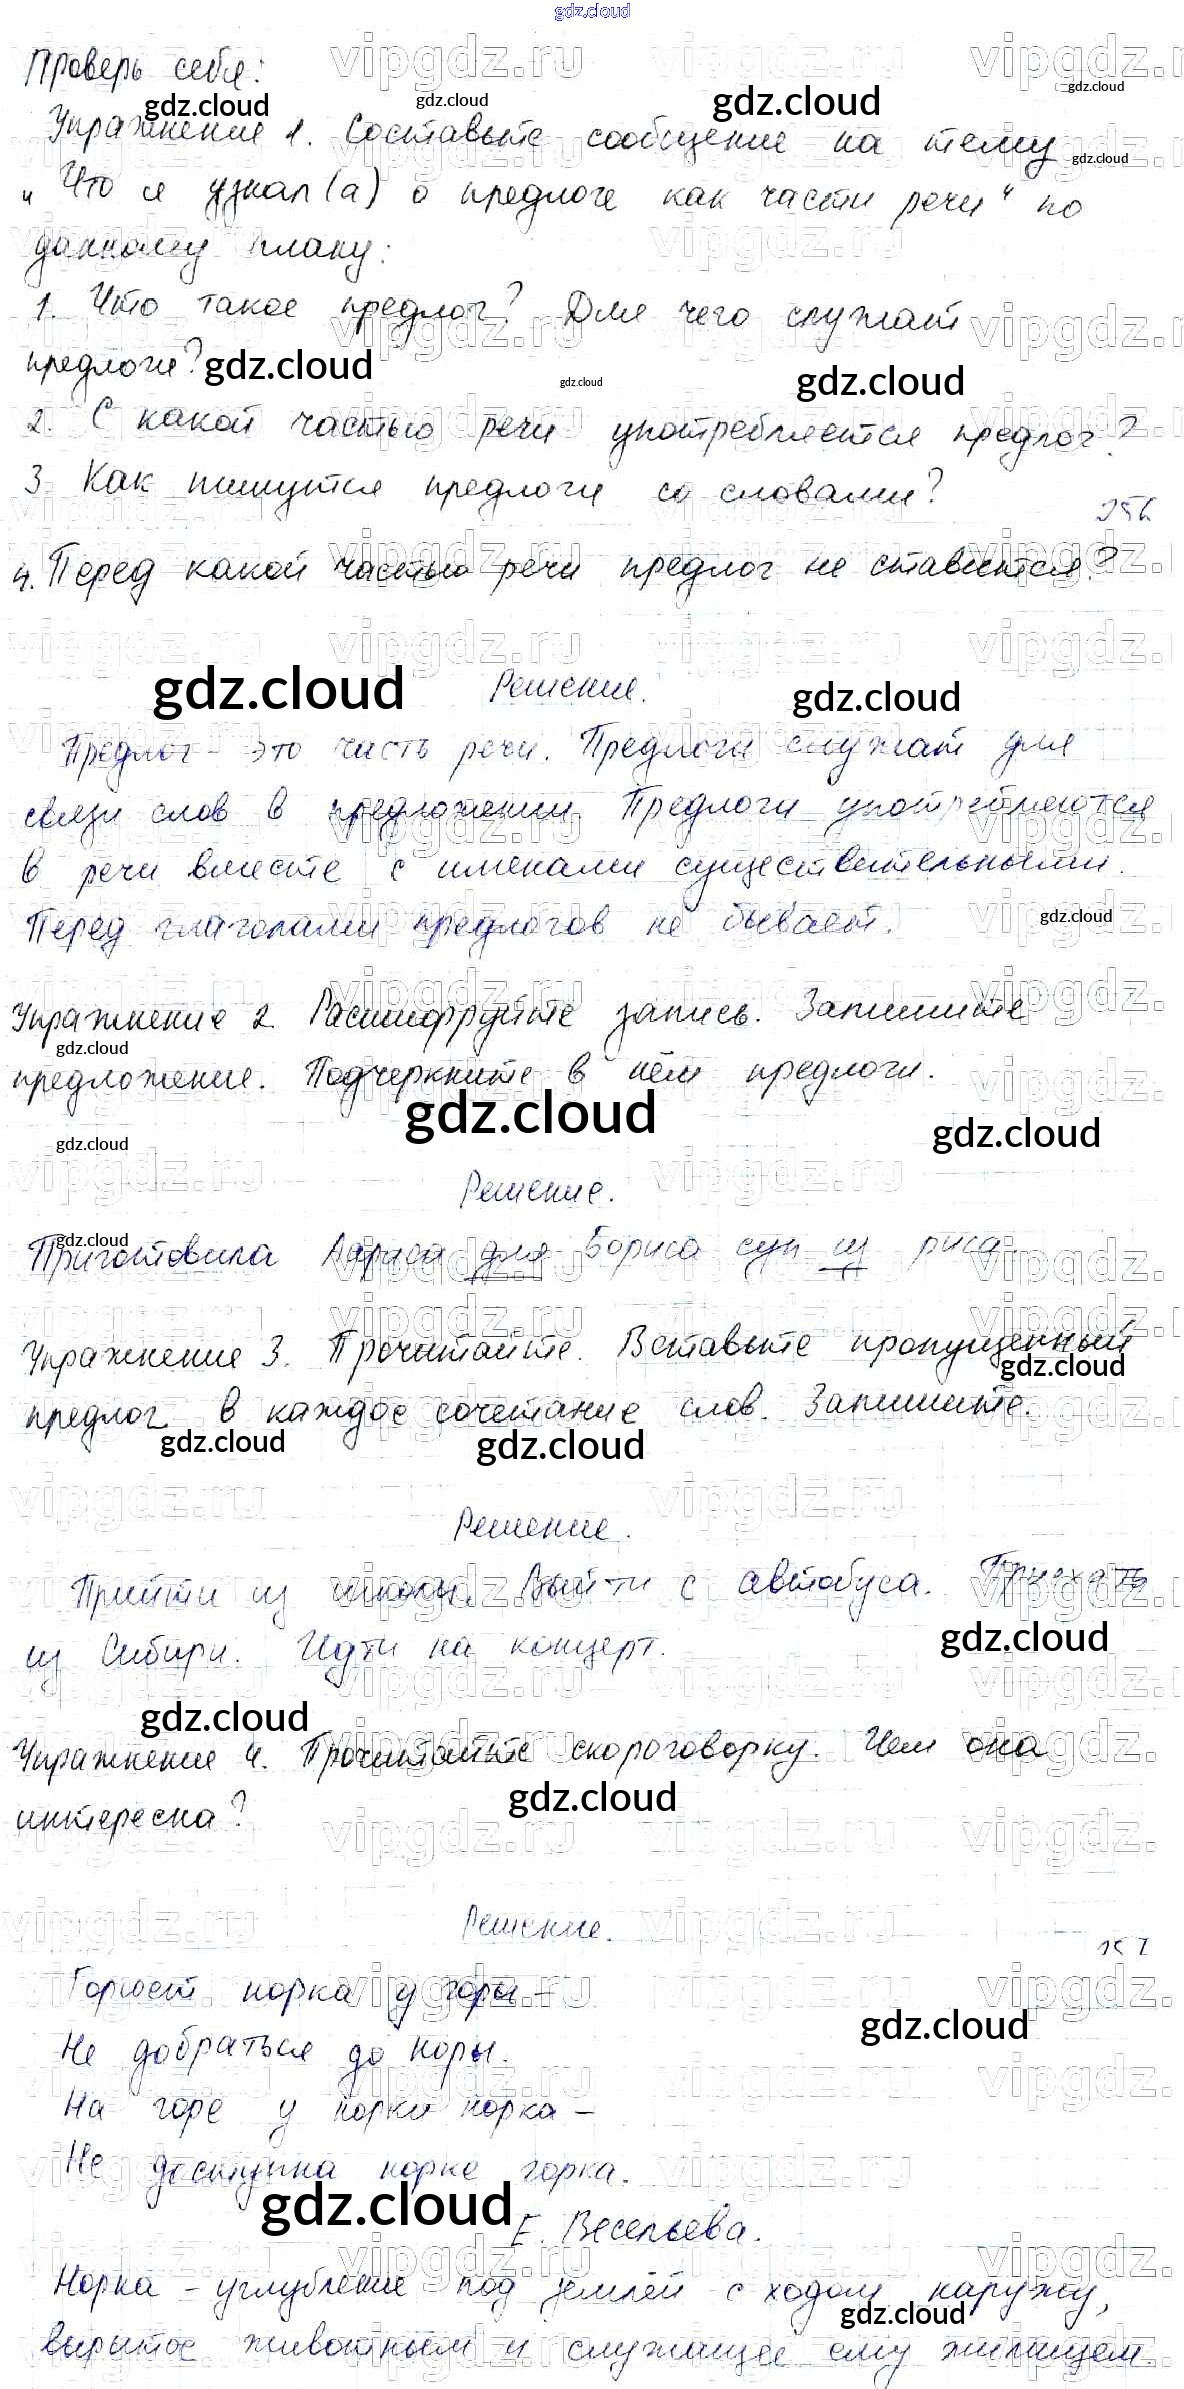 gdz.cloud
Проверь себя:
Упражнение 1. Составьте сообщение на тему
„Что я узнал(а) о предлоге как части речи“ по
данному плану:
1. Что такое предлог? Для чего служат
предлоги?
2. С какой частью речи употребляется предлог?
3. Как пишутся предлоги со словами?
4. Перед какой частью речи предлог не ставится?
Решение.
Предлог - это часть речи. Предлоги служат для
связи слов в предложении. Предлоги употребляются
в речи вместе с именами существительными.
Перед глаголами предлогов не бывает.
Упражнение 2. Расшифруйте запись. Запишите
предложение. Подчеркните в нём предлоги.
Решение.
Приготовила Лариса для Бориса суп из риса.
Упражнение 3. Прочитайте. Вставьте пропущенный
предлог в каждое сочетание слов. Запишите.
Решение.
Прийти из школы. Выйти с автобуса. Приехать
из Сибири. Идти на концерт.
Упражнение 4. Прочитайте скороговорку. Чем она
интересна?
Решение.
157
Горюет норка у горы –
Не добраться до норы.
На горе у норки норка –
Не доступна норке горка.
Е. Весельева.
Норка – углубление под землёй с ходом наружу,
вырытое животным и служащее ему жилищем.